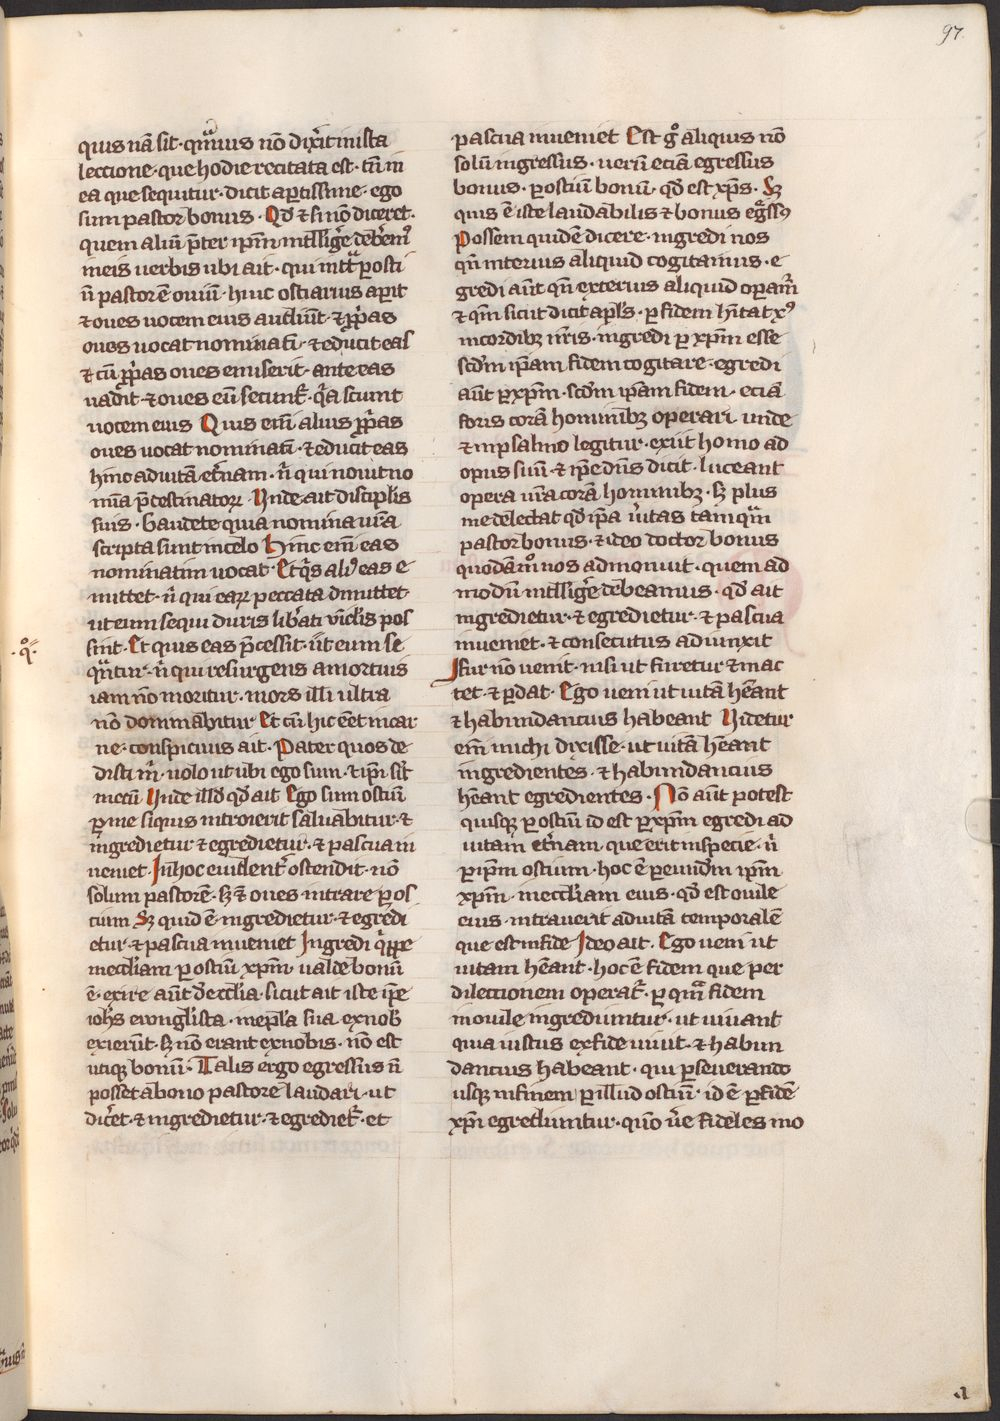 97.
quis nā sit · qͣmuis nō dix̄it in ista
leccione · que hodie recitata est · tn̄ in
ea que sequitur · dicit aꝑtissime · ego
sum pastor bonus · Qd̄ ⁊ si nō diceret ·
quem aliū p̄ter ip̄m intll̄ige̓ deb̓emꝰ
in eis uerbis ubi ait · qui intͣt ꝑ osti
ū pastor ē ouiū · huic ostiarius aꝑit
⁊ oues uocem eius audiūt · ⁊ ꝓp̓as
oues uocat nominati̅ · ⁊ educit eas
⁊ cū ꝓp̓as oues emiserit · ante eas
uadit · ⁊ oues eū secunt᷑ · qͥa sciunt
uocem eius Quis em̄ alius ꝓp̓as
oues uocat nominati̅ · ⁊ educit eas
hinc ad uitā et̓nam · n̓ qui nouit no
mīa p̄destinatoꝝ Vnde ait discipl̓is
suis · Gaudete quia nomina ur̄a
scripta sunt in celo Hinc em̄ eas
nominatim uocat · Et qͥs aliꝰ eas e
mittet · n̓ qui eaꝝ peccata dimittet
ut eum sequi duris lib̓ati uīclis pos
sint · Et quis eas p̄cessit · ut eum se
qͣntur · n̓ qui resurgens a mortuis
iam nō moritur · mors illi ultra
nō dominabitur Et cū hic eēt in car
ne · conspicuus ait · Pater quos de
disti m̓ · uolo ut ubi ego sum · ⁊ ip̄i sīt
mecū Vnde illd̄ qd̄ ait Ego sum ostiū
ꝑ me siquis introierit saluabitur · ⁊
ingredietur ⁊ egredietur · ⁊ pascua in
ueniet · In hoc euident̓ ostendit · nō
solum pastorē · sꝫ ⁊ oues intrare ꝑ os
tium Sꝫ quid ē · ingredietur · ⁊ egredi
etur · ⁊ pascua inueniet Ingredi qͥppe
in eccl̓iam ꝑ ostiū xp̄m · ualde bonū
ē · exire aūt de eccl̓ia · sicut ait iste ip̄e
ioh̄s ewangl̓ista · in epl̓a sua ex nob̓
exierūt · sꝫ nō erant ex nobis · nō est
utiqꝫ bonū · Talis ergo egressus n̄
posset a bono pastore laudari · ut
dic̓et · ⁊ ingredietur · ⁊ egrediet᷑ · et
pascua inueniet Est gͦ aliquis nō
solū ingressus · uerū eciā egressus
bonus · ꝑ ostiū bonū · qd̄ est xp̄s · Sꝫ
quis ē iste laudabilis ⁊ bonus eg̓ssꝰ
Possem quidē dicere · ingredi nos
qn̄ interius aliquid cogitamus · e
gredi aūt qn̄ exterius aliquid oꝑam᷑
⁊ qm̄ sicut dicit apl̓s · ꝑ fidem h̓itat xꝰ
in cordibꝫ nr̄is · ingredi ꝑ xp̄m esse
scd̓m ip̄am fidem cogitare · egredi
aūt ꝑ xp̄m · scd̓m ip̄am fidem · eciā
foris corā hominibꝫ operari · unde
⁊ in psalmo legitur · exiit homo ad
opus suū · ⁊ ip̄e dn̄s dicit · luceant
opera ur̄a corā hominibꝫ · sꝫ plus
me delectat qd̄ ip̄a u̓itas tamqͣm
pastor bonus · ⁊ ideo doctor bonus
quodāmͦ nos admonuit · quem ad
modū intll̄ige̓ debeamus · qd̄ ait
ingredietur · ⁊ egredietur · ⁊ pascua
inueniet · ⁊ consecutus adiunxit
Fur nō uenit · nisi ut furetur ⁊ mac
tet · ⁊ ꝑdat · Ego ueni ut uitā h̓eant
⁊ habundancius habeant Videtur
em̄ michi dixisse · ut uitā h̓eant
ingredientes · ⁊ habundancius
h̓eant egredientes · Nō aūt potest
quisqꝫ ꝑ ostiū id est ꝑ xp̄m egredi ad
uitam et̓nam · que erit in specie · n̓
ꝑ ip̄m ostium · hoc ē ꝑ eund̄m ip̄m
xp̄m · in eccl̓iam eius · qd̄ est ouile
eius · intrauerit ad uitā temporalē
que est in fide Ideo ait · Ego ueni ut
uitam h̓eant · hoc ē fidem que per
dileccionem operat᷑ · ꝑ qͣm fidem
in ouile ingrediuntur · ut uiuant
quia iustus ex fide uiuit · ⁊ habun
dancius habeant · qui ꝑseuerando
usqꝫ in finem ꝑ illud ostiū · id ē ꝑ fidē
xp̄i egrediuntur · qm̄ u̓e fideles mo